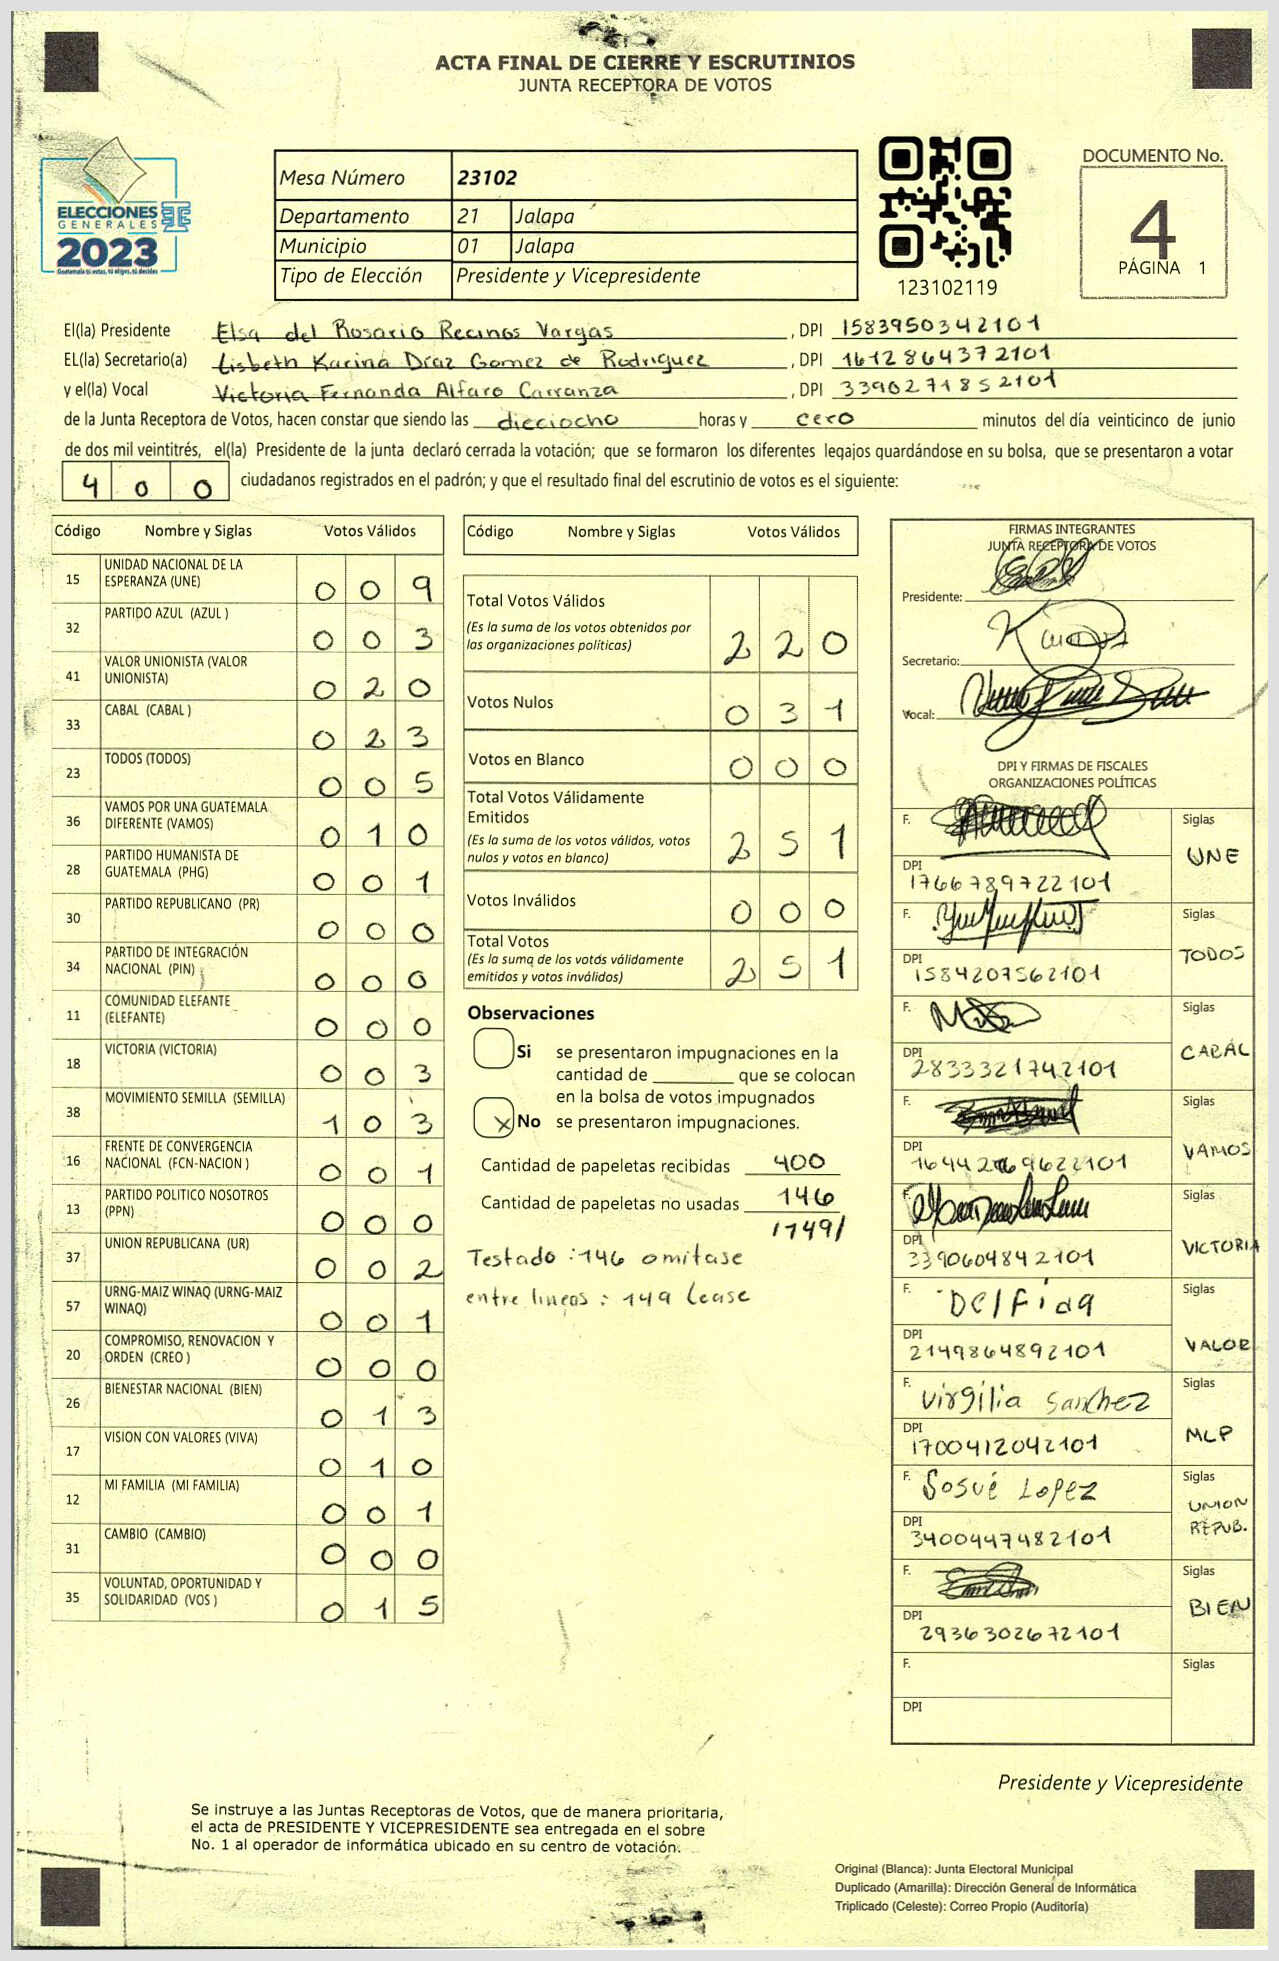 ACTA FINAL DE CIERRE Y ESCRUTINIOS
JUNTA RECEPTORA DE VOTOS
ELECCIONES
GENERALES
2023
Guatemala tú votas, tú eliges, tú decides
Mesa Número 23102
Departamento 21 Jalapa
Municipio 01 Jalapa
Tipo de Elección Presidente y Vicepresidente
123102119
DOCUMENTO No.
4
PÁGINA 1
El(la) Presidente Elsa del Rosario Recinos Vargas , DPI 1583950342101
EL(la) Secretario(a) Lisbeth Karina Díaz Gomez de Rodriguez , DPI 1612864372101
y el(la) Vocal Victoria Fernanda Alfaro Carranza , DPI 3390271852101
de la Junta Receptora de Votos, hacen constar que siendo las dieciocho horas y cero minutos del día veinticinco de junio
de dos mil veintitrés, el(la) Presidente de la junta declaró cerrada la votación; que se formaron los diferentes legajos guardándose en su bolsa, que se presentaron a votar
400 ciudadanos registrados en el padrón; y que el resultado final del escrutinio de votos es el siguiente:
Código Nombre y Siglas Votos Válidos
15 UNIDAD NACIONAL DE LA ESPERANZA (UNE) 009
32 PARTIDO AZUL (AZUL ) 003
41 VALOR UNIONISTA (VALOR UNIONISTA) 020
33 CABAL (CABAL ) 023
23 TODOS (TODOS) 005
36 VAMOS POR UNA GUATEMALA DIFERENTE (VAMOS) 010
28 PARTIDO HUMANISTA DE GUATEMALA (PHG) 001
30 PARTIDO REPUBLICANO (PR) 000
34 PARTIDO DE INTEGRACIÓN NACIONAL (PIN) 000
11 COMUNIDAD ELEFANTE (ELEFANTE) 000
18 VICTORIA (VICTORIA) 003
38 MOVIMIENTO SEMILLA (SEMILLA) 103
16 FRENTE DE CONVERGENCIA NACIONAL (FCN-NACION ) 001
13 PARTIDO POLITICO NOSOTROS (PPN) 000
37 UNION REPUBLICANA (UR) 002
57 URNG-MAIZ WINAQ (URNG-MAIZ WINAQ) 001
20 COMPROMISO, RENOVACION Y ORDEN (CREO ) 000
26 BIENESTAR NACIONAL (BIEN) 013
17 VISION CON VALORES (VIVA) 010
12 MI FAMILIA (MI FAMILIA) 001
31 CAMBIO (CAMBIO) 000
35 VOLUNTAD, OPORTUNIDAD Y SOLIDARIDAD (VOS ) 015
Código Nombre y Siglas Votos Válidos
Total Votos Válidos 220
(Es la suma de los votos obtenidos por
las organizaciones políticas)
Votos Nulos 031
Votos en Blanco 000
Total Votos Válidamente
Emitidos 251
(Es la suma de los votos válidos, votos
nulos y votos en blanco)
Votos Inválidos 000
Total Votos 251
(Es la suma de los votos válidamente
emitidos y votos inválidos)
Observaciones
Si se presentaron impugnaciones en la
cantidad de ________ que se colocan
en la bolsa de votos impugnados
X No se presentaron impugnaciones.
Cantidad de papeletas recibidas 400
Cantidad de papeletas no usadas 146
/149/
Testado : 146 omitase
entre lineas : 149 Lease
FIRMAS INTEGRANTES
JUNTA RECEPTORA DE VOTOS
Presidente:
Secretario:
Vocal:
DPI Y FIRMAS DE FISCALES
ORGANIZACIONES POLÍTICAS
F. Siglas
UNE
DPI
1766789722101
F. Siglas
TODOS
DPI
1584207562101
F. Siglas
CABAL
DPI
2833321742101
F. Siglas
VAMOS
DPI
F. Siglas
VICTORIA
DPI
3390604842101
F. Delfida Siglas
VALOR
DPI
2149864892101
F. Virgilia Sanchez Siglas
MLP
DPI
1700412042101
F. Josué Lopez Siglas
UNION
REPUB.
DPI
3400447482101
F. Siglas
BIEN
DPI
2936302672101
F. Siglas
DPI
Presidente y Vicepresidente
Se instruye a las Juntas Receptoras de Votos, que de manera prioritaria,
el acta de PRESIDENTE Y VICEPRESIDENTE sea entregada en el sobre
No. 1 al operador de informática ubicado en su centro de votación.
Original (Blanca): Junta Electoral Municipal
Duplicado (Amarilla): Dirección General de Informática
Triplicado (Celeste): Correo Propio (Auditoría)